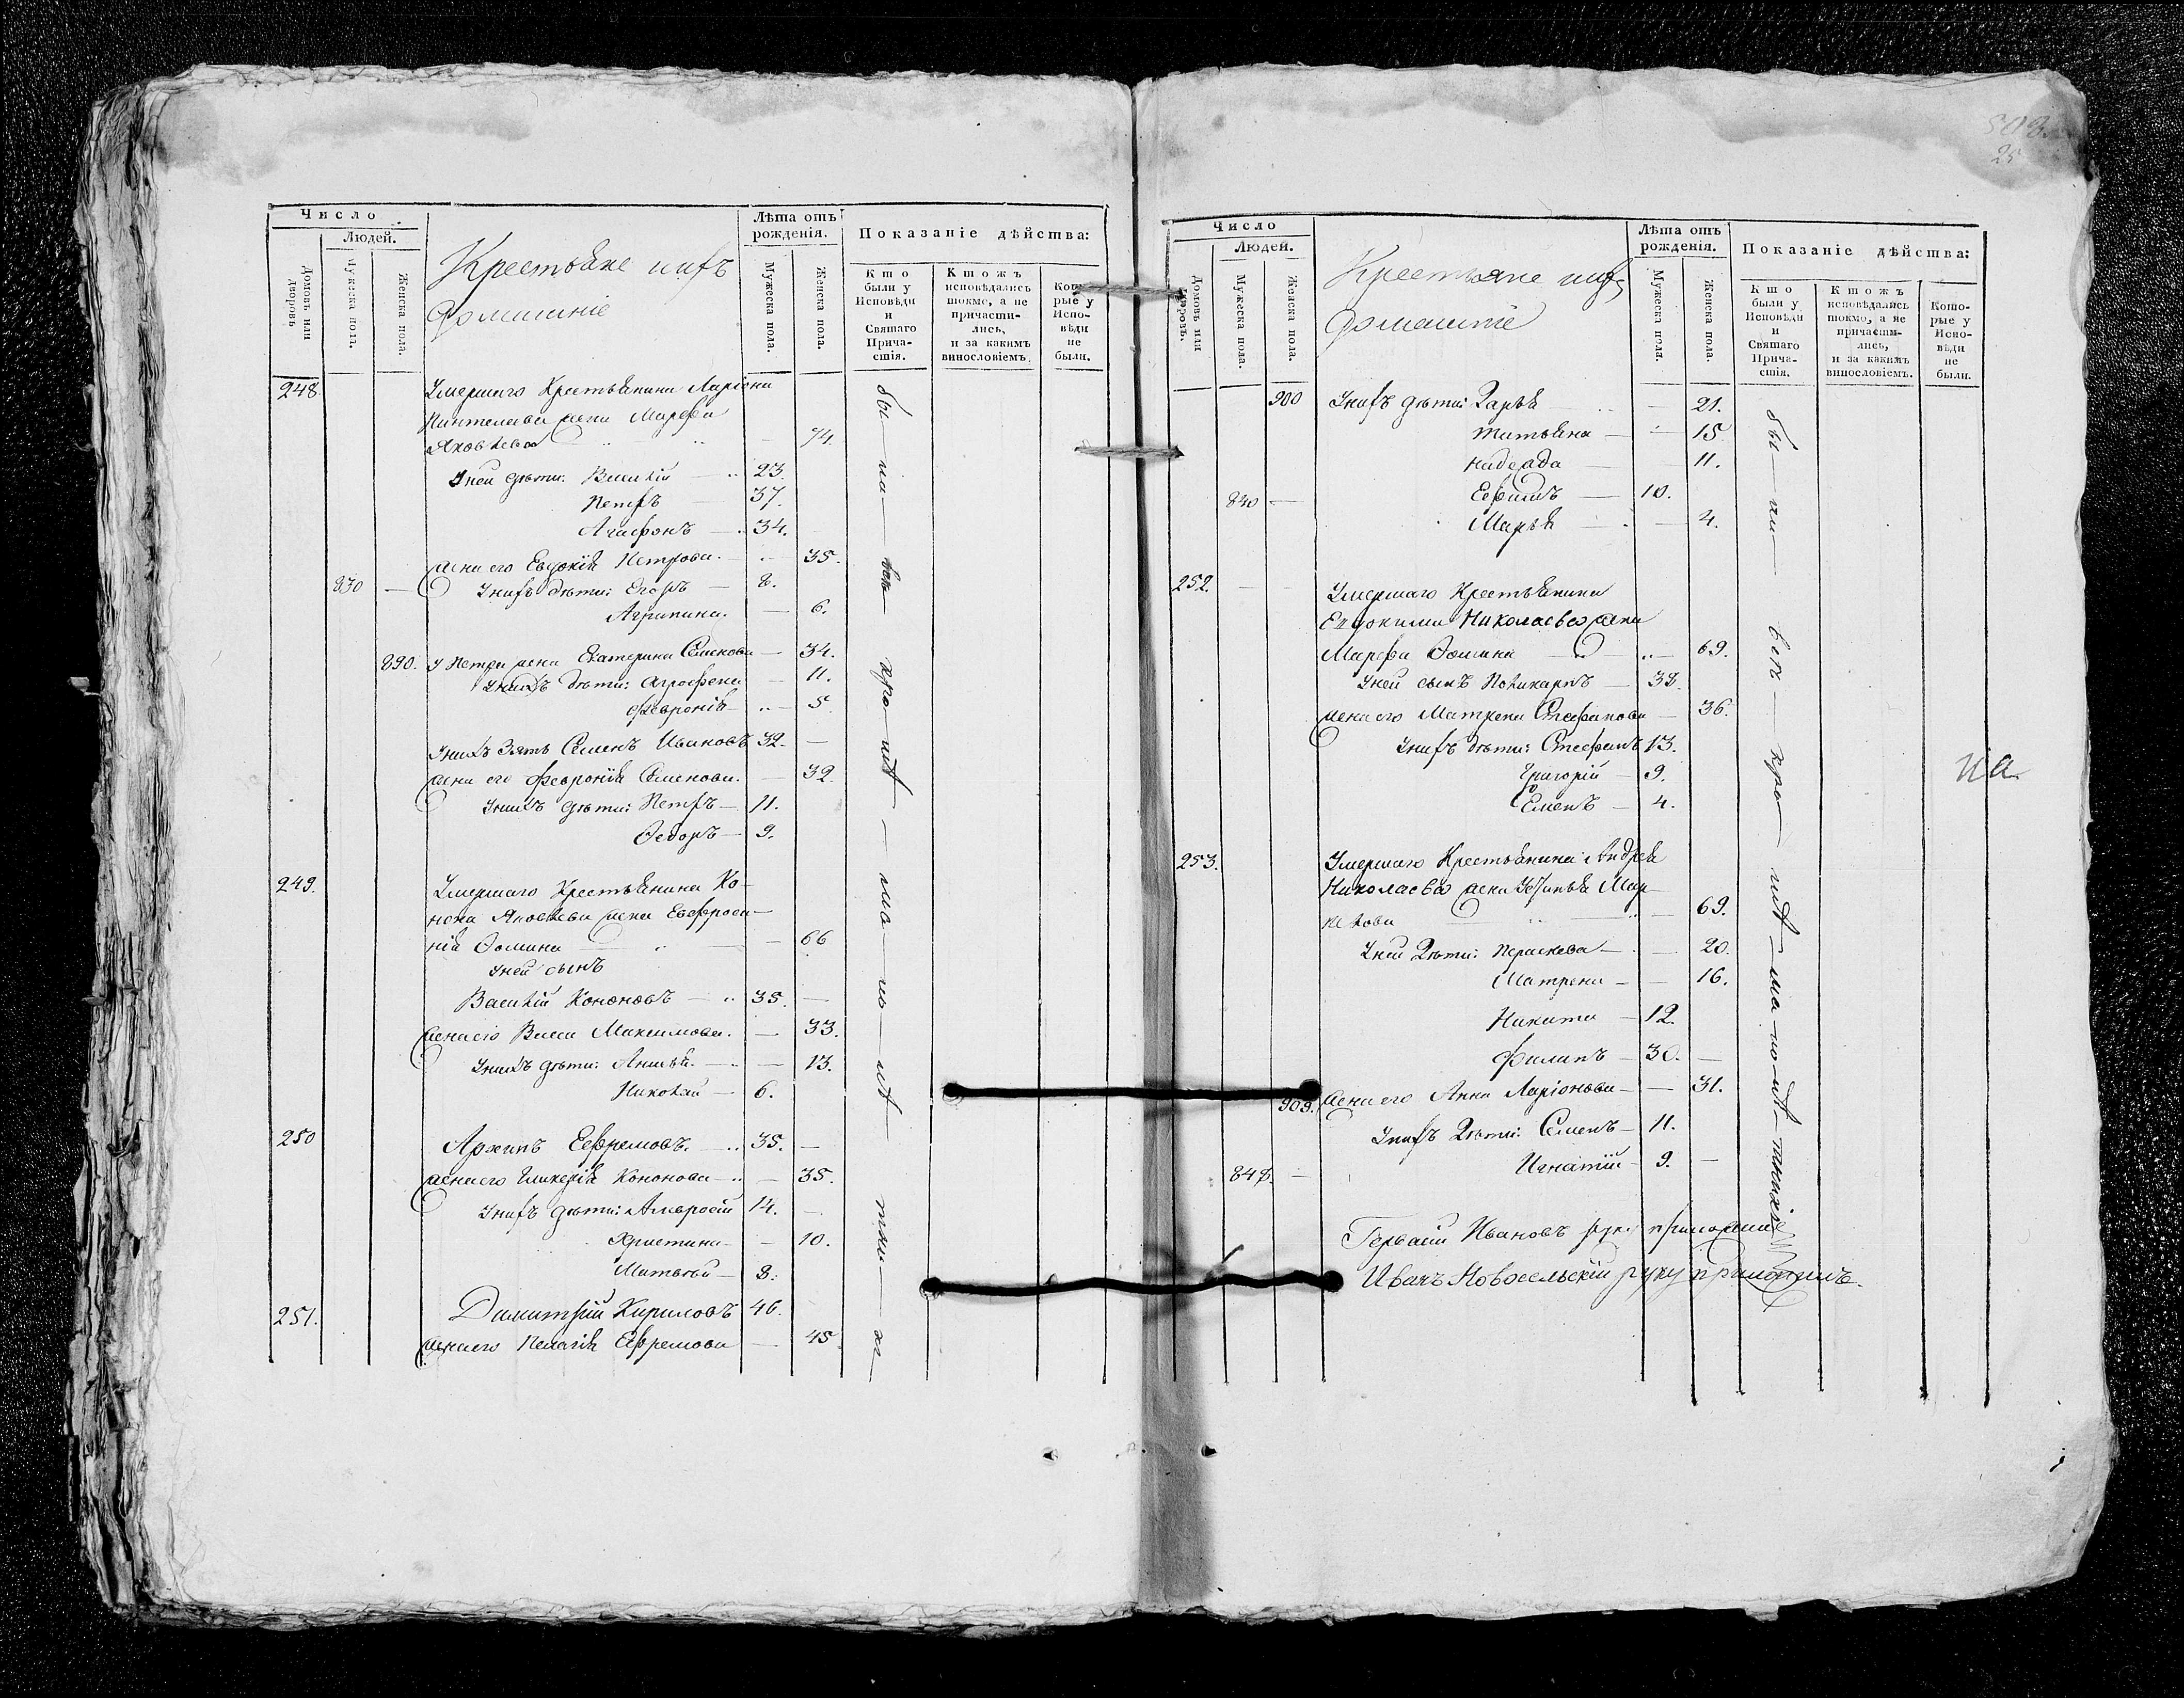 Число
Людей.
Домовъ или дворовъ
Мужеска пола.
Женска пола.
Крестьяне ихъ
домашніе
Лѣта отъ рожденія.
Мужеска пола.
Женска пола.
Показаніе дѣйства:
Кто были у Исповѣди и Святаго Причастія.
Ктожъ исповѣдались токмо, а не причастились, и за какимъ винословіемъ.
Которые у Исповѣди не были.
248. Умершаго Крестьянина Ларіона
Пантелеева жена Марфа
Яковлева 74.
У ней дѣти: Василій 23.
Петръ 37.
Агафонъ 34.
жена его Евдокія Петрова. 35.
830 У нихъ дѣти: Егоръ 8.
Агрипина. 6.
890. у Петра жена Екатерина Семенова 34.
У нихъ дѣти: Агрофена 11.
Февронія 5
У нихъ Зять Семенъ Ивановъ 32.
жена его Февронія Семенова. 32
У нихъ дѣти: Петръ 11.
Ѳедоръ 9.
249. Умершаго Крестьянина Ко-
нона Яковлева жена Евфроси-
нія Ѳомина 66
У ней сынъ
Василій Кононовъ 35.
жена его Васса Максимова. 33.
У нихъ дѣти: Анисья. 13.
Николай 6.
250 Архипъ Ефремовъ. 35.
жена его Гликерія Кононова 35.
У нихъ дѣти: Амвросій 14.
Христина 10.
Матвѣй 8.
251. Димитрій Кириловъ 46.
жена его Пелагія Ефремова 45
бы ли все про ит ма по ит
508.
25
Число
Людей.
Домовъ или дворовъ.
Мужеска пола.
Женска пола.
Крестьяне ихъ
домашніе
Лѣта отъ рожденія.
Мужеска пола.
Женска пола.
Показаніе дѣйства:
Кто были у Исповѣди и Святаго Причастія.
Ктожъ исповѣдались токмо, а не причастились, и за какимъ винословіемъ.
Которые у Исповѣди не были.
900 У нихъ дѣти: Дарья 21.
Татьяна 15.
Надежда 11.
840 Ефимъ 10.
Марья 4.
252. Умершаго Крестьянина
Евдокима Николаева жена
Марфа Ѳомина 69.
У ней сынъ Поликарпъ 38.
жена его Матрена Стефанова 36.
У нихъ дѣти: Стефанъ 13.
Григорій 9.
Семенъ 4.
253. Умершаго Крестьянина Андрея
Николаева жена Устинья Мар-
келова 69.
У ней Дѣти: Параскева 20.
Матрена 16.
Никита 12.
Филипъ 30.
909. жена его Анна Ларіонова 31.
У нихъ Дѣти: Семенъ 11.
848. Игнатій 9.
Гервасій Ивановъ руку приложилъ
Иванъ Новосельскій руку приложилъ.